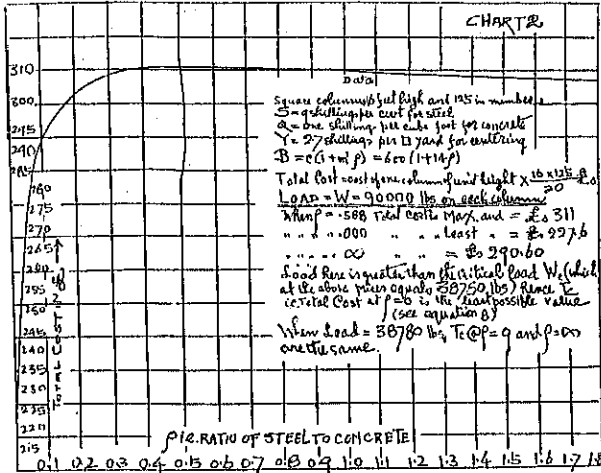 CHART 2
Data
Square columns 10 feet high and 125 in number
S = 9 shillings per cwt for steel
Q = one shilling per cube foot for concrete
Y = 27 shillings per □ yard for centering
B = c(1+m'ρ) = 600(1+14ρ)
Total Cost = cost of one column of unit height × 10×125/20
LOAD = W = 90000 lbs on each column
When ρ = .588 Total cost is Max, and = £. 311
" " " .000 " " " Least " = £. 227.6
" " " ∞ " " = £. 290.60
Load here is greater than the critical load Wc (which
at the above prices equals 38750 lbs) hence Tc
i.e. Total Cost at ρ=0 is the least possible value
(see equation 8)
When Load = 38780 lbs, Tc @ ρ = 0 and ρ = ∞
are the same.
310
300
295
290
285
280
275
270
265
260
255
250
245
240
235
230
225
220
215
TOTAL COST = £.
ρ i.e. RATIO OF STEEL TO CONCRETE
0.1 0.2 0.3 0.4 0.5 0.6 0.7 0.8 0.9 1.0 1.1 1.2 1.3 1.4 1.5 1.6 1.7 1.8